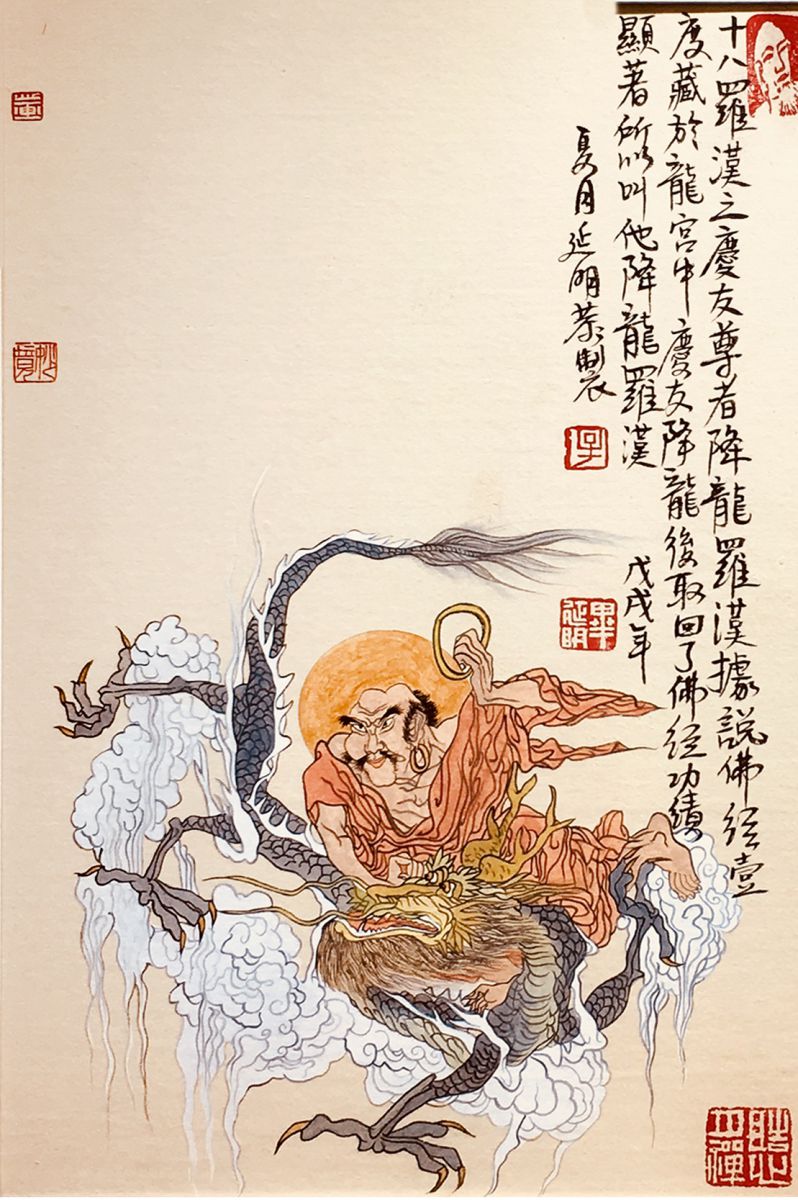 十八羅漢之慶友尊者降龍羅漢據說佛經壹
度藏於龍宮中慶友降龍後取回了佛經功績
顯著所以叫他降龍羅漢 戊戌年
夏月延明恭製
畢延明